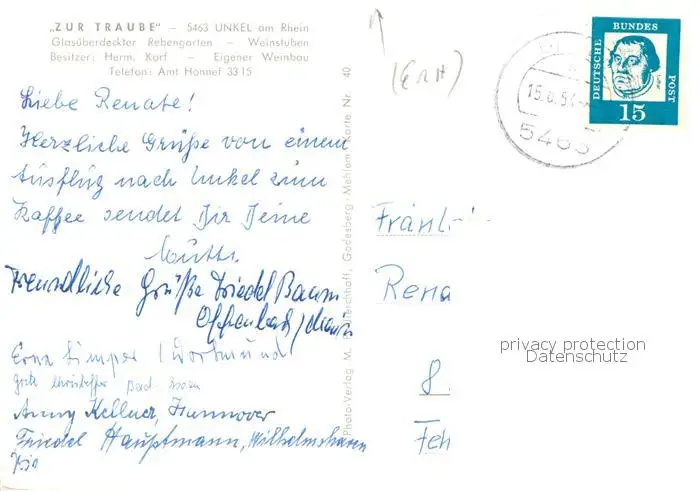 „ZUR TRAUBE” – 5463 UNKEL am Rhein
Glasüberdeckter Rebengarten – Weinstuben
Besitzer: Herm. Korf – Eigener Weinbau
Telefon: Amt Honnef 3315
Liebe Renate!
Herzliche Grüße von einem
Ausflug nach Unkel zum
Kaffee sendet Dir Deine
Mutti
Freundliche Grüße Friedel Baum
Offenbach/Main
Erna Limper (Dortmund
Bad
Anny Kellner, Hannover
Friedel Hauptmann, Wilhelmshaven
Photo-Verlag M. Godesberg-Mehlem Karte Nr. 40
DEUTSCHE
BUNDES
POST
15
5463
Fräul
Rena
8
Feh
privacy protection
Datenschutz